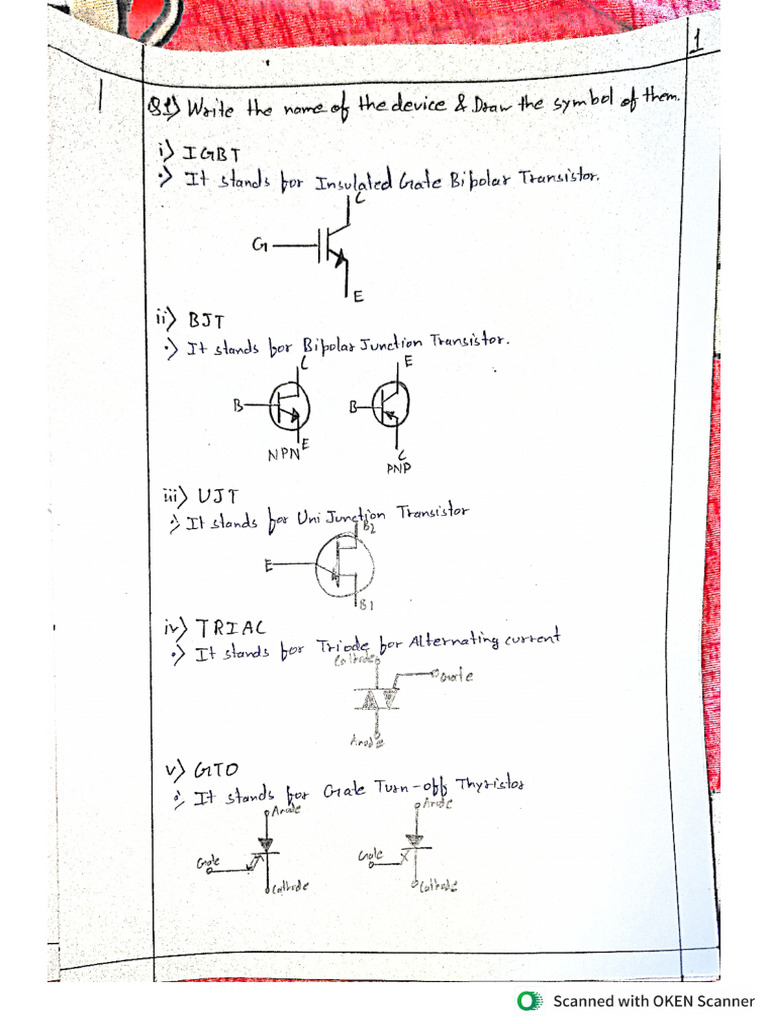 1
1
Q1) Write the name of the device & Draw the symbol of them.
i) IGBT
:) It stands for Insulated Gate Bipolar Transistor.
C
G
E
ii) BJT
:) It stands for Bipolar Junction Transistor.
C
E
B
B
E
NPN
C
PNP
iii) UJT
:) It stands for Uni Junction Transistor
B2
E
B1
iv) TRIAC
:) It stands for Triode for Alternating current
Cathode
Gate
Anode
v) GTO
:) It stands for Gate Turn-off Thyristor
Anode
Anode
Gate
Gate
Cathode
Cathode
Scanned with OKEN Scanner